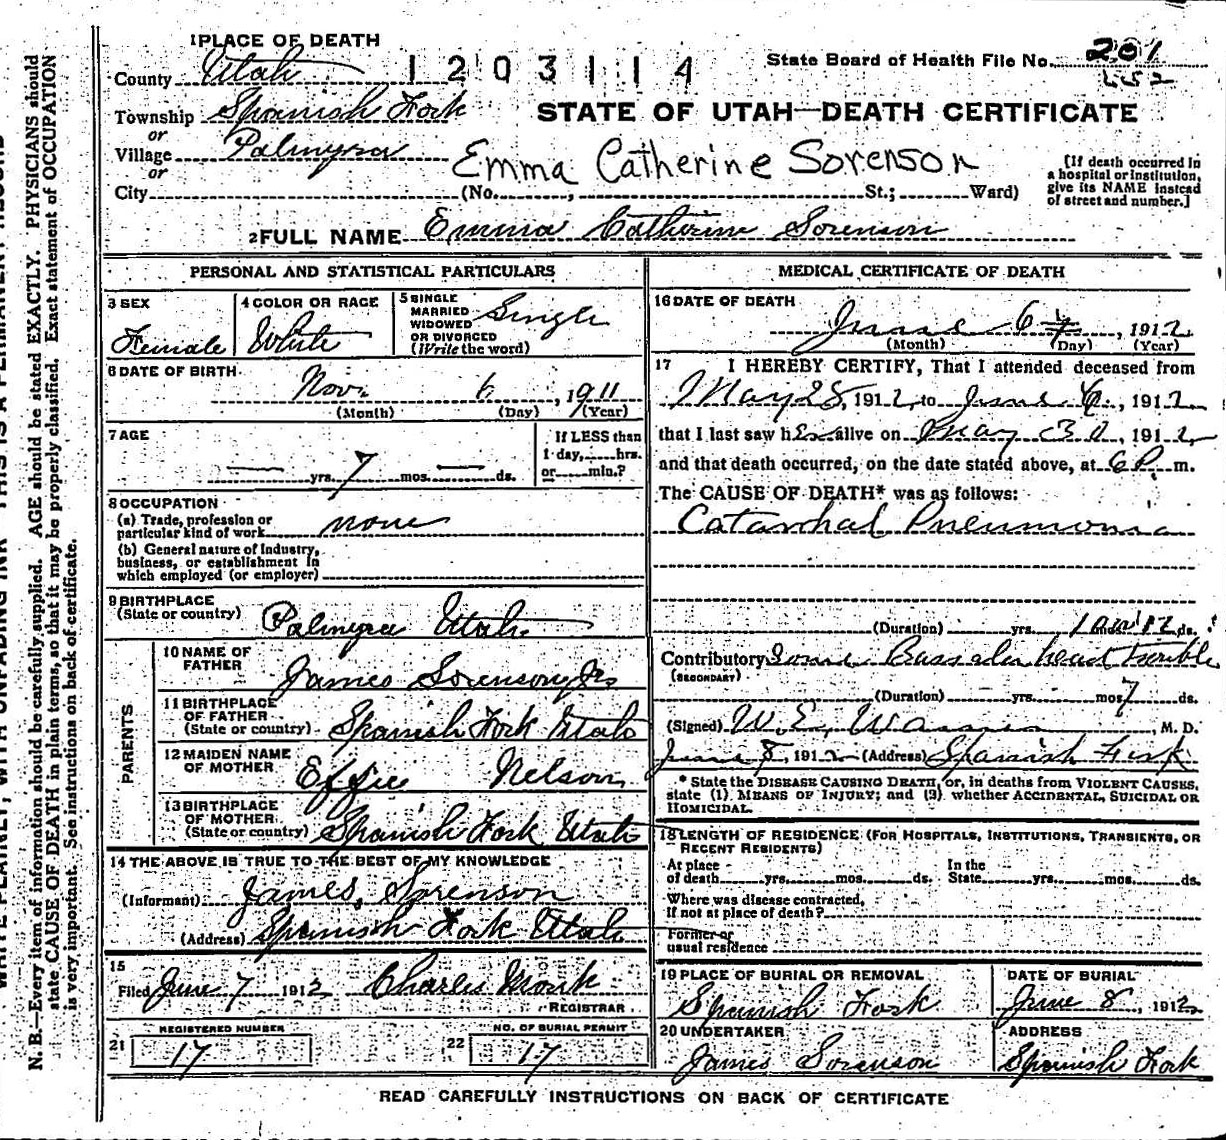 1 PLACE OF DEATH
County Utah 1203114 State Board of Health File No. 201
Township Spanish Fork STATE OF UTAH—DEATH CERTIFICATE
or
Village Palmyra Emma Catherine Sorenson
or
City (No. , St.; Ward)
[If death occurred in
a hospital or institution,
give its NAME instead
of street and number.]
2 FULL NAME Emma Catherine Sorenson
PERSONAL AND STATISTICAL PARTICULARS
3 SEX
Female
4 COLOR OR RACE
White
5 SINGLE
MARRIED
WIDOWED
OR DIVORCED
(Write the word)
Single
6 DATE OF BIRTH
Nov. 6, 1911
(Month) (Day) (Year)
7 AGE
— yrs. 7 mos. — ds.
If LESS than
1 day, hrs.
or min.?
8 OCCUPATION
(a) Trade, profession or
particular kind of work none
(b) General nature of Industry,
business, or establishment in
which employed (or employer)
9 BIRTHPLACE
(State or country) Palmyra Utah
PARENTS
10 NAME OF
FATHER James Sorenson Jr
11 BIRTHPLACE
OF FATHER
(State or country) Spanish Fork Utah
12 MAIDEN NAME
OF MOTHER Effie Nelson
13 BIRTHPLACE
OF MOTHER
(State or country) Spanish Fork Utah
14 THE ABOVE IS TRUE TO THE BEST OF MY KNOWLEDGE
(Informant) James Sorenson
(Address) Spanish Fork Utah
15
Filed June 7 1912 Charles Monk
REGISTRAR
21 REGISTERED NUMBER
17
22 NO. OF BURIAL PERMIT
17
MEDICAL CERTIFICATE OF DEATH
16 DATE OF DEATH
June 6, 1912
(Month) (Day) (Year)
17 I HEREBY CERTIFY, That I attended deceased from
May 25, 1912, to June 6, 1912
that I last saw her alive on May 30, 1912,
and that death occurred, on the date stated above, at 6 P. m.
The CAUSE OF DEATH* was as follows:
Catarrhal Pneumonia
(Duration) yrs. 12 ds.
Contributory Some head trouble
(SECONDARY)
(Duration) yrs. mos 7 ds.
(Signed) W. E. M. D.
June 8, 1912 (Address) Spanish Fork
* State the DISEASE CAUSING DEATH, or, in deaths from VIOLENT CAUSES,
state (1) MEANS OF INJURY; and (2) whether ACCIDENTAL, SUICIDAL OR
HOMICIDAL.
18 LENGTH OF RESIDENCE (FOR HOSPITALS, INSTITUTIONS, TRANSIENTS, OR
RECENT RESIDENTS)
At place
of death yrs. mos. ds.
In the
State yrs. mos. ds.
Where was disease contracted,
If not at place of death?
Former or
usual residence
19 PLACE OF BURIAL OR REMOVAL
Spanish Fork
DATE OF BURIAL
June 8, 1912
20 UNDERTAKER
James Sorenson
ADDRESS
Spanish Fork
READ CAREFULLY INSTRUCTIONS ON BACK OF CERTIFICATE
N. B.—Every item of information should be carefully supplied. AGE should be stated EXACTLY. PHYSICIANS should
state CAUSE OF DEATH in plain terms, so that it may be properly classified. Exact statement of OCCUPATION
is very important. See instructions on back of certificate.